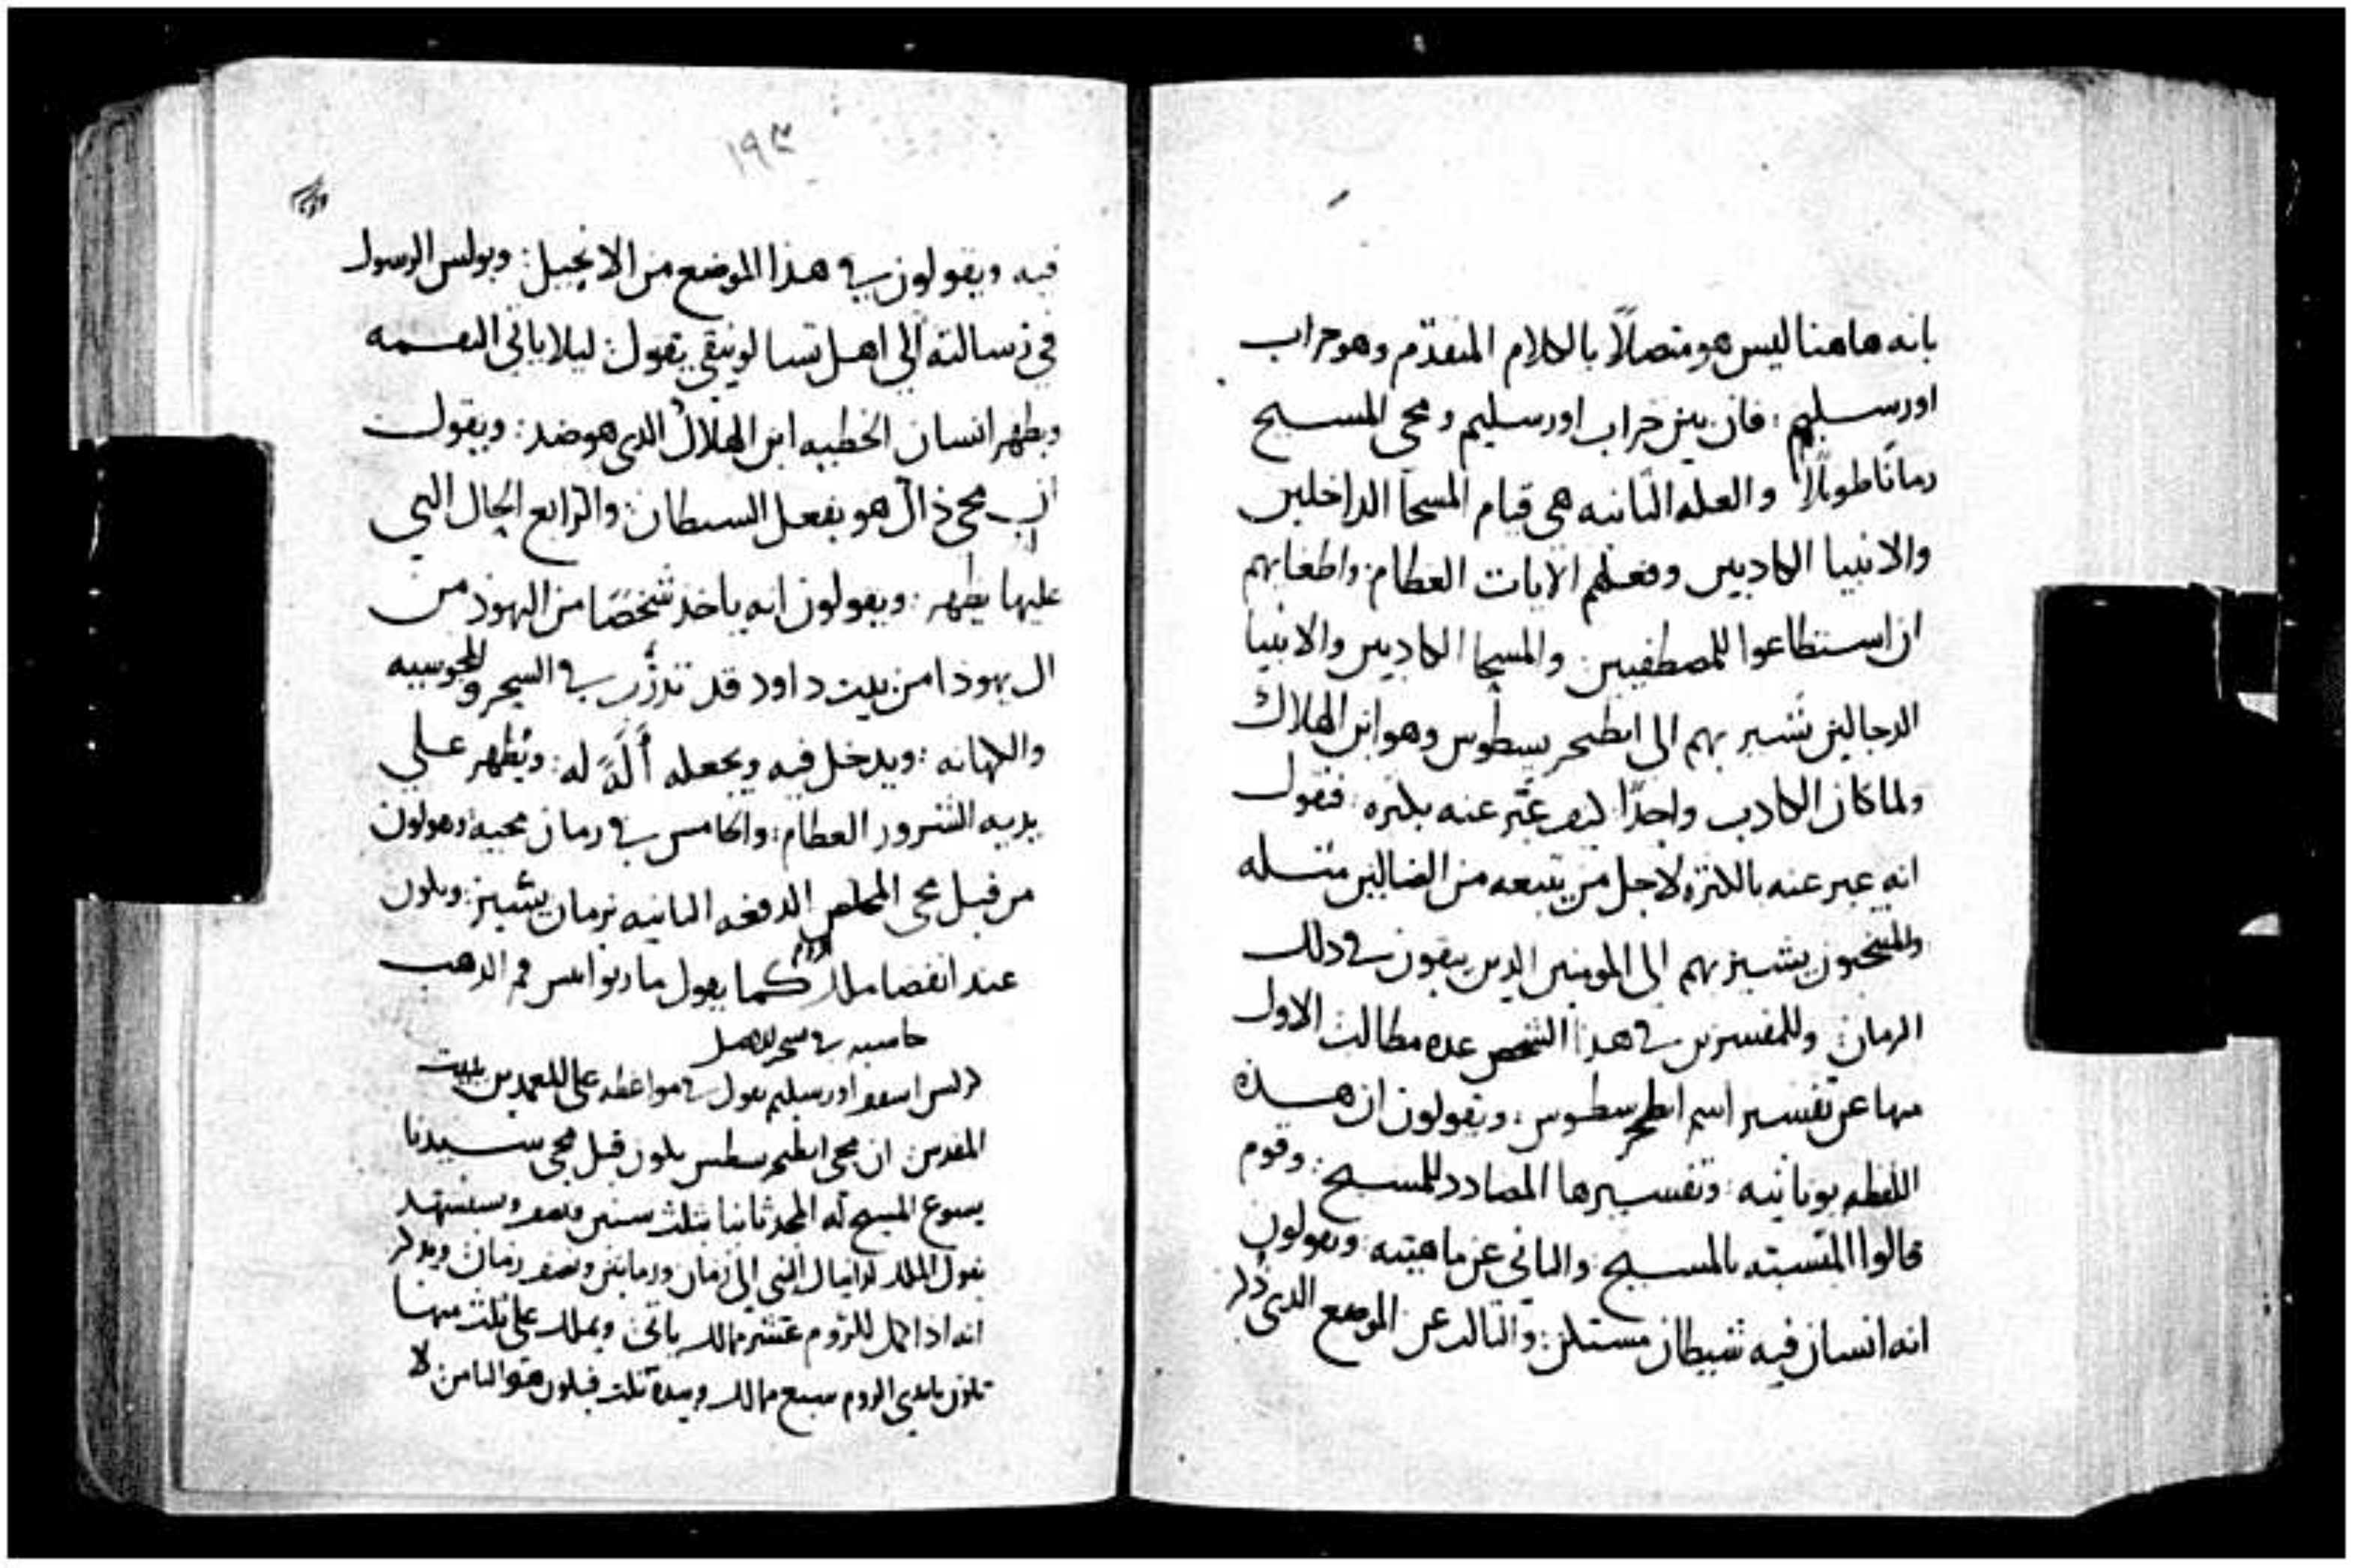 بانه هاهنا ليس هو متصلاً بالكلام المتقدم وهو خراب
اورسليم : فان بين خراب اورسليم ومجى المسيح
زماناً طويلاً والعله الثانيه هى قيام المسحا الداخلين
والانبيا الكادبين وفعلهم الايات العظام واطغايهم
ان استطاعوا للمصطفيين : والمسحا الكادبين والانبيا
الدجالين تشير بهم الى انطيخريسطوس وهو ابن الهلاك
ولما كان الكادب واحداً كيف عبَّر عنه بكثره : فنقول
انه عبر عنه بالكثره لاجل من يتبعه من الضالين مثله
والمنتخبون يشير بهم الى المومنين الدين يبقون في دلك
الزمان : وللمفسرين في هذا الشخص عده مطالب الاول
منها عن تفسير اسم انطيخرسطوس : ويقولون ان هده
اللفظه يونانيه : وتفسيرها المضادد للمسيح : وقوم
قالوا المتشبه بالمسيح : والثاني عن ماهيته : ويقولون
انه انسان فيه شيطان مستكن : والثالث عن الموضع الدى دكر
١٩٣
فيه ويقولون في هذا الموضع من الانجيل : وبولس الرسول
في رسالته الى اهل تسالونيقى يقول : ليلا ياتى
ويظهر انسان الخطيه ابن الهلاك الدى هو ضد : ويقول
ان مجى ذاك هو بفعل الشيطان : والرابع الحال التي
عليها يظهر : ويقولون انه ياخذ شخصًا من اليهود من
ال يهودا من بيت داود قد تدرَّب في السحر والمجوسيه
والكهانه : ويدخل فيه ويجعله ألَةً له : ويُظهر على
يديه الشرور العظام : والخامس في زمان مجيه ويقولون
من قبل مجى المخلص الدفعه الثانيه بزمان يسير : ويكون
عند انقضا ملك الروم كما يقول ماريوانس فم الدهب
حاشيه في
كرلس اسقف اورسليم يقول في مواعظه على المعمدين ببيت
المقدس ان مجى انطيخرسطس يكون قبل مجى سيدنا
يسوع المسيح له المجد ثانيا بثلث سنين ونصف ويستشهد
بقول الملاك لدانيال النبي الى زمان وزمانين ونصف زمان ويدكر
انه اذا كمل للروم عشر ممالك ياتى ويملك على ثلث منها
تكون بايدى الروم سبع ممالك وبيده ثلث فيكون هو الثامن لا